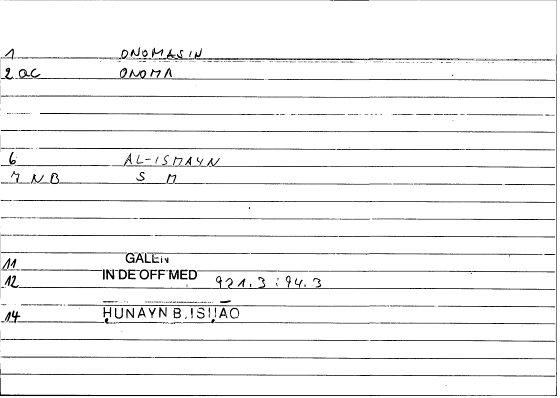 1 ONOMASIN
2 OC ONOMA
6 AL-ISMAYN
7 NB S M
11 GALEN
12 IN DE OFF MED 921.3 : 94.3
14 ḤUNAYN B. ISḤAQ